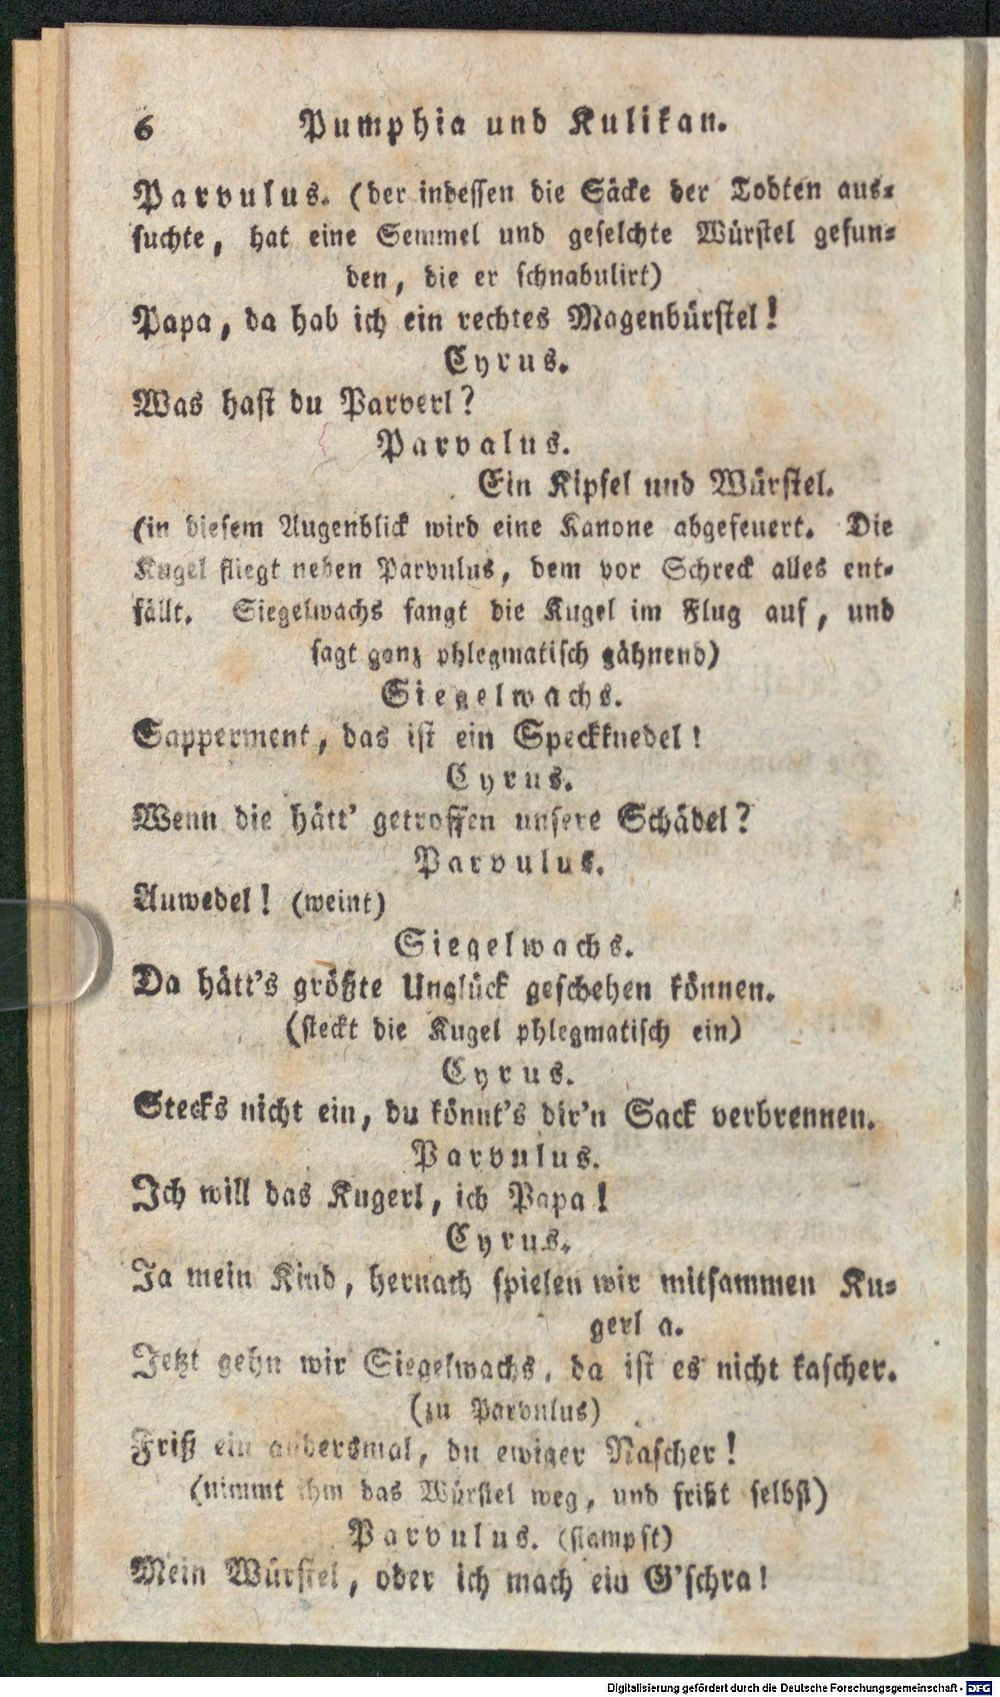 6 Pumphia und Kulikan.
Parvulus. (der indessen die Säcke der Todten aus-
suchte, hat eine Semmel und geselchte Würstel gefun-
den, die er schnabulirt)
Papa, da hab ich ein rechtes Magenbürstel!
Cyrus.
Was hast du Parverl?
Parvalus.
Ein Kipfel und Würstel.
(in diesem Augenblick wird eine Kanone abgefeuert. Die
Kugel fliegt neben Parvulus, dem vor Schreck alles ent-
fällt. Siegelwachs fangt die Kugel im Flug auf, und
sagt ganz phlegmatisch gähnend)
Siegelwachs.
Sapperment, das ist ein Speckknedel!
Cyrus.
Wenn die hätt' getroffen unsere Schädel?
Parvulus.
Auwedel! (weint)
Siegelwachs.
Da hätt's größte Unglück geschehen können.
(steckt die Kugel phlegmatisch ein)
Cyrus.
Stecks nicht ein, du könnt's dir'n Sack verbrennen.
Parvulus.
Ich will das Kugerl, ich Papa!
Cyrus.
Ja mein Kind, hernach spielen wir mitsammen Ku-
gerl a.
Jetzt gehn wir Siegelwachs, da ist es nicht kascher.
(zu Parvulus)
Friß ein andersmal, du ewiger Nascher!
(nimmt ihm das Würstel weg, und frißt selbst)
Parvulus. (stampft)
Mein Würstel, oder ich mach ein G'schra!
Digitalisierung gefördert durch die Deutsche Forschungsgemeinschaft - DFG